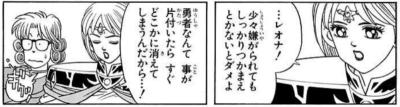 …レオナ!
少々嫌がられても
しっかりつかまえ
とかないとダメよ
勇者なんて 事が
片付いたら すぐ
どこかに消えて
しまうんだから…!